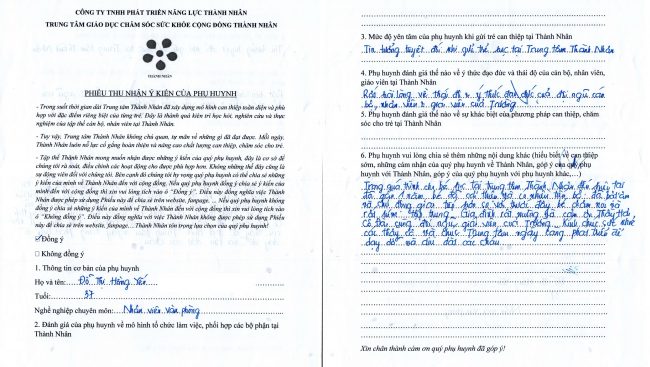 CÔNG TY TNHH PHÁT TRIỂN NĂNG LỰC THÀNH NHÂN
TRUNG TÂM GIÁO DỤC CHĂM SÓC SỨC KHỎE CỘNG ĐỒNG THÀNH NHÂN
THÀNH NHÂN
PHIẾU THU NHẬN Ý KIẾN CỦA PHỤ HUYNH
- Trong suốt thời gian dài Trung tâm Thành Nhân đã xây dựng mô hình can thiệp toàn diện và phù
hợp với đặc điểm riêng biệt của từng trẻ. Đây là thành quả kiên trì học hỏi, nghiên cứu và thực
nghiệm của tập thể cán bộ, nhân viên tại Thành Nhân.
- Tuy vậy, Trung tâm Thành Nhân không chủ quan, tự mãn về những gì đã đạt được. Mỗi ngày,
Thành Nhân luôn nỗ lực cố gắng hoàn thiện và nâng cao chất lượng can thiệp, chăm sóc cho trẻ.
- Tập thể Thành Nhân mong muốn nhận được những ý kiến của quý phụ huynh, đây là cơ sở để
chúng tôi rà soát, điều chỉnh các hoạt động cho được phù hợp hơn. Không những thế đây cũng là
sự động viên đối với chúng tôi. Bên cạnh đó chúng tôi hy vọng quý phụ huynh có thể chia sẻ những
ý kiến của mình về Thành Nhân đến với cộng đồng. Nếu quý phụ huynh đồng ý chia sẻ ý kiến của
mình đến với cộng đồng thì xin vui lòng tích vào ô "Đồng ý". Điều này đồng nghĩa việc Thành
Nhân được phép sử dụng Phiếu này để chia sẻ trên website, fanpage. ... Nếu quý phụ huynh không
đồng ý chia sẻ những ý kiến của mình về Thành Nhân đến với cộng đồng thì xin vui lòng tích vào
ô "Không đồng ý". Điều này đồng nghĩa với việc Thành Nhân không được phép sử dụng Phiếu
này để chia sẻ trên website, fanpage… Thành Nhân tôn trọng lựa chọn của quý phụ huynh!
Đồng ý
Không đồng ý
1. Thông tin cơ bản của phụ huynh
Họ và tên: Đỗ Thị Hồng Yến
Tuổi: 37
Nghề nghiệp chuyên môn: Nhân viên văn phòng
2. Đánh giá của phụ huynh về mô hình tổ chức làm việc, phối hợp các bộ phận tại
Thành Nhân
3. Mức độ yên tâm của phụ huynh khi gửi trẻ can thiệp tại Thành Nhân
Tin tưởng tuyệt đối khi gửi trẻ học tại Trung tâm Thành Nhân
4. Phụ huynh đánh giá thế nào về ý thức đạo đức và thái độ của cán bộ, nhân viên,
giáo viên tại Thành Nhân
Rất hài lòng về thái độ và ý thức đạo đức của đội ngũ cán
bộ, nhân viên, giáo viên của Trường
5. Phụ huynh đánh giá thế nào về sự khác biệt của phương pháp can thiệp, chăm
sóc cho trẻ tại Thành Nhân
6. Phụ huynh vui lòng chia sẻ thêm những nội dung khác (hiểu biết về can thiệp
sớm, những cảm nhận của quý phụ huynh về Thành Nhân, góp ý của quý phụ
huynh với Thành Nhân, góp ý của quý phụ huynh với phụ huynh khác,…)
Trong quá trình cho bé học tại trung tâm Thành Nhân đến hiện tại
đã gần 1 năm, bé đã cải thiện và có nhiều tiến bộ, đã bớt cảm
Gia đình rất mừng và cảm ơn Thầy Hải
Cô và đội ngũ giáo viên của Trường. Kính chúc sức khỏe
các thầy cô và chúc Trung tâm ngày càng phát triển để
dạy dỗ và dìu dắt các cháu.
Xin chân thành cảm ơn quý phụ huynh đã góp ý!